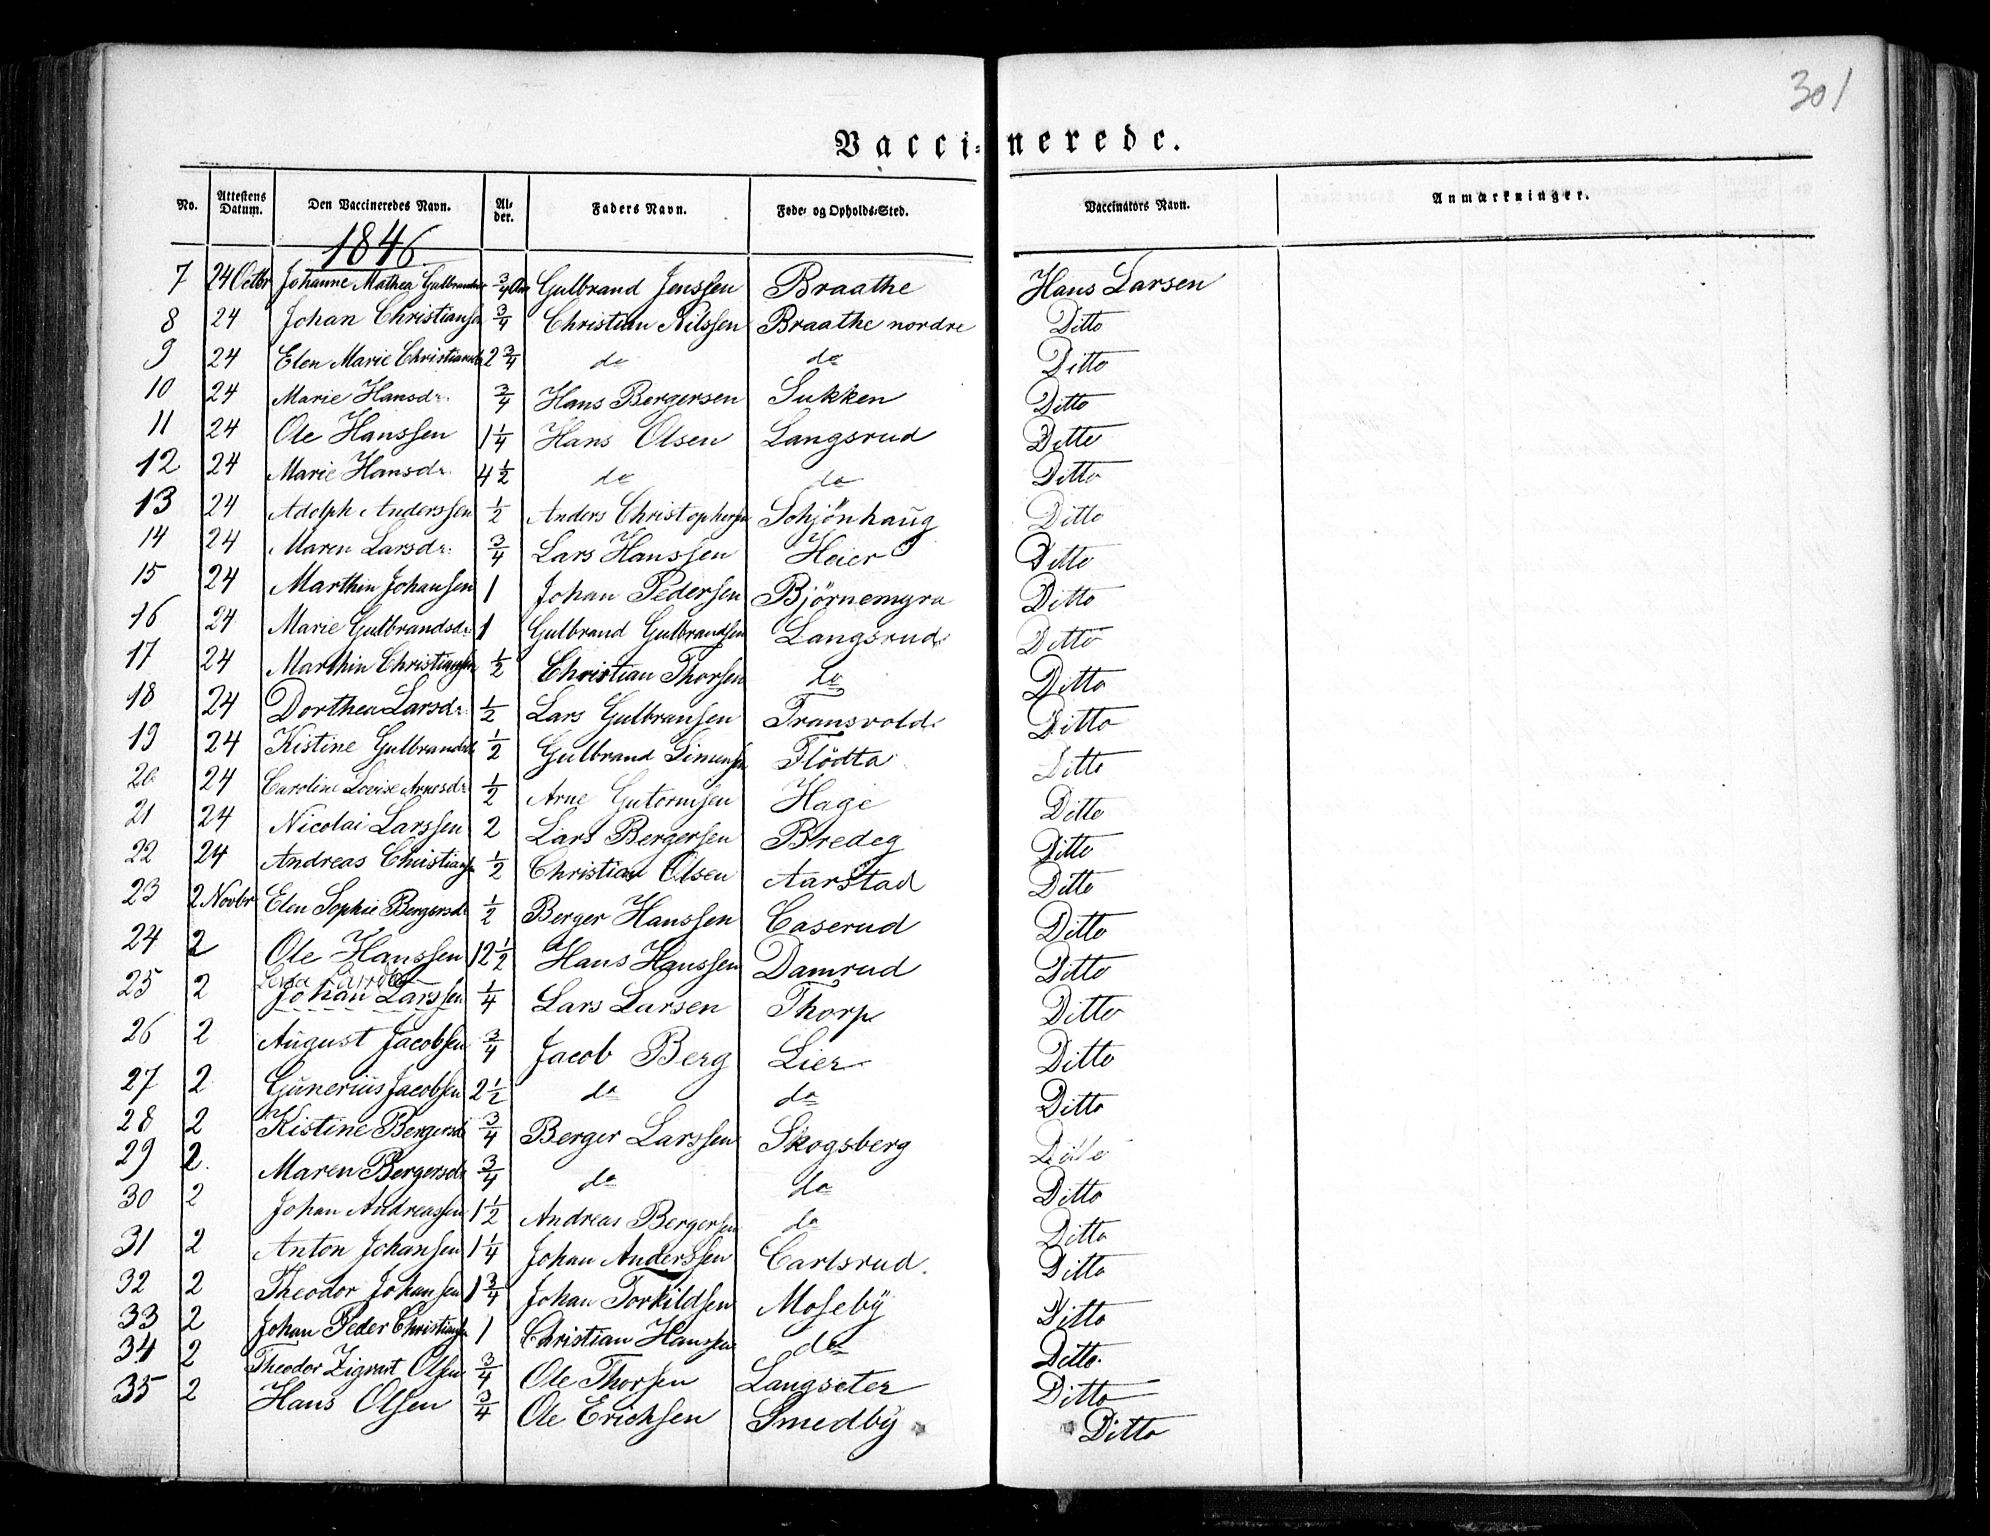 301
Vacci-nerede.
No. Attestens Datum. Den Vaccineredes Navn. Alder. Faders Navn. Føde- og Opholds-Sted. Vaccinators Navn. Anmærkninger.
1846
7 24 Octbr Johanne Mathea Gulbrandsd 3/4 Aar Gulbrand Jenssen Braathe Hans Larsen
8 24 Johan Christiansen 3/4 Christian Nilssen Braathe nordre Ditto
9 24 Elen Marie Christiansd 2 3/4 do do Ditto
10 24 Marie Hansdr. 3/4 Hans Bergersen Sukken Ditto
11 24 Ole Hanssen 1 1/4 Hans Olsen Langsrud Ditto
12 24 Marie Hansdr. 4 1/2 do do Ditto
13 24 Adolph Anderssen 1/2 Anders Christophersen Schjönhaug Ditto
14 24 Maren Larsdr. 3/4 Lars Hanssen Heier Ditto
15 24 Marthin Johansen 1 Johan Pedersen Björnemyra Ditto
16 24 Marie Gulbrandsdr 1 Gulbrand Gulbrandsen Langsrud Ditto
17 24 Marthin Christiansen 1/2 Christian Thorsen do Ditto
18 24 Dorthea Larsdr. 1/2 Lars Gulbransen Transvold Ditto
19 24 Kistine Gulbrandsd 1/2 Gulbrand Simensen Flödta Ditto
20 24 Caroline Lovise Arnesdr 1/2 Arne Gutormsen Hage Ditto
21 24 Nicolai Larssen 2 Lars Bergersen Bredeg Ditto
22 24 Andreas Christiansen 1/2 Christian Olsen Aarstad Ditto
23 2 Novbr Elen Sophie Bergersd 1/2 Berger Hanssen Caserud Ditto
24 2 Ole Hanssen 12 1/2 Hans Hanssen Damrud Ditto
25 2 Johan Larssen 1/4 Lars Larsen Thorp Ditto
26 2 August Jacobsen 3/4 Jacob Berg Lier Ditto
27 2 Gunerius Jacobsen 2 1/2 do do Ditto
28 2 Kistine Bergersd 3/4 Berger Larssen Skogsberg Ditto
29 2. Maren Bergersd 3/4 do do Ditto
30 2 Johan Andreassen 1 1/2 Andreas Bergersen do Ditto
31 2 Anton Johansen 1 1/4 Johan Anderssen Carlsrud. Ditto
32 2 Theodor Johansen 1 3/4 Johan Torkildsen Moseby Ditto
33 2 Johan Peder Christiansen 1 Christian Hanssen do Ditto.
34 2 Theodor Zigvart Olsen 3/4 Ole Thorsen Langseter Ditto
35 2 Hans Olsen 3/4 Ole Erichsen Smedby Ditto